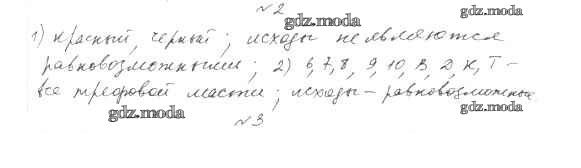 №2
gdz.moda gdz.moda
1) красный, черный; исходы не являются
равновозможными; 2) 6, 7, 8, 9, 10, В, Д, К, Т –
gdz.moda gdz.moda
все трефовой масти; исходы – равновозможные.
gdz.moda gdz.moda
№3